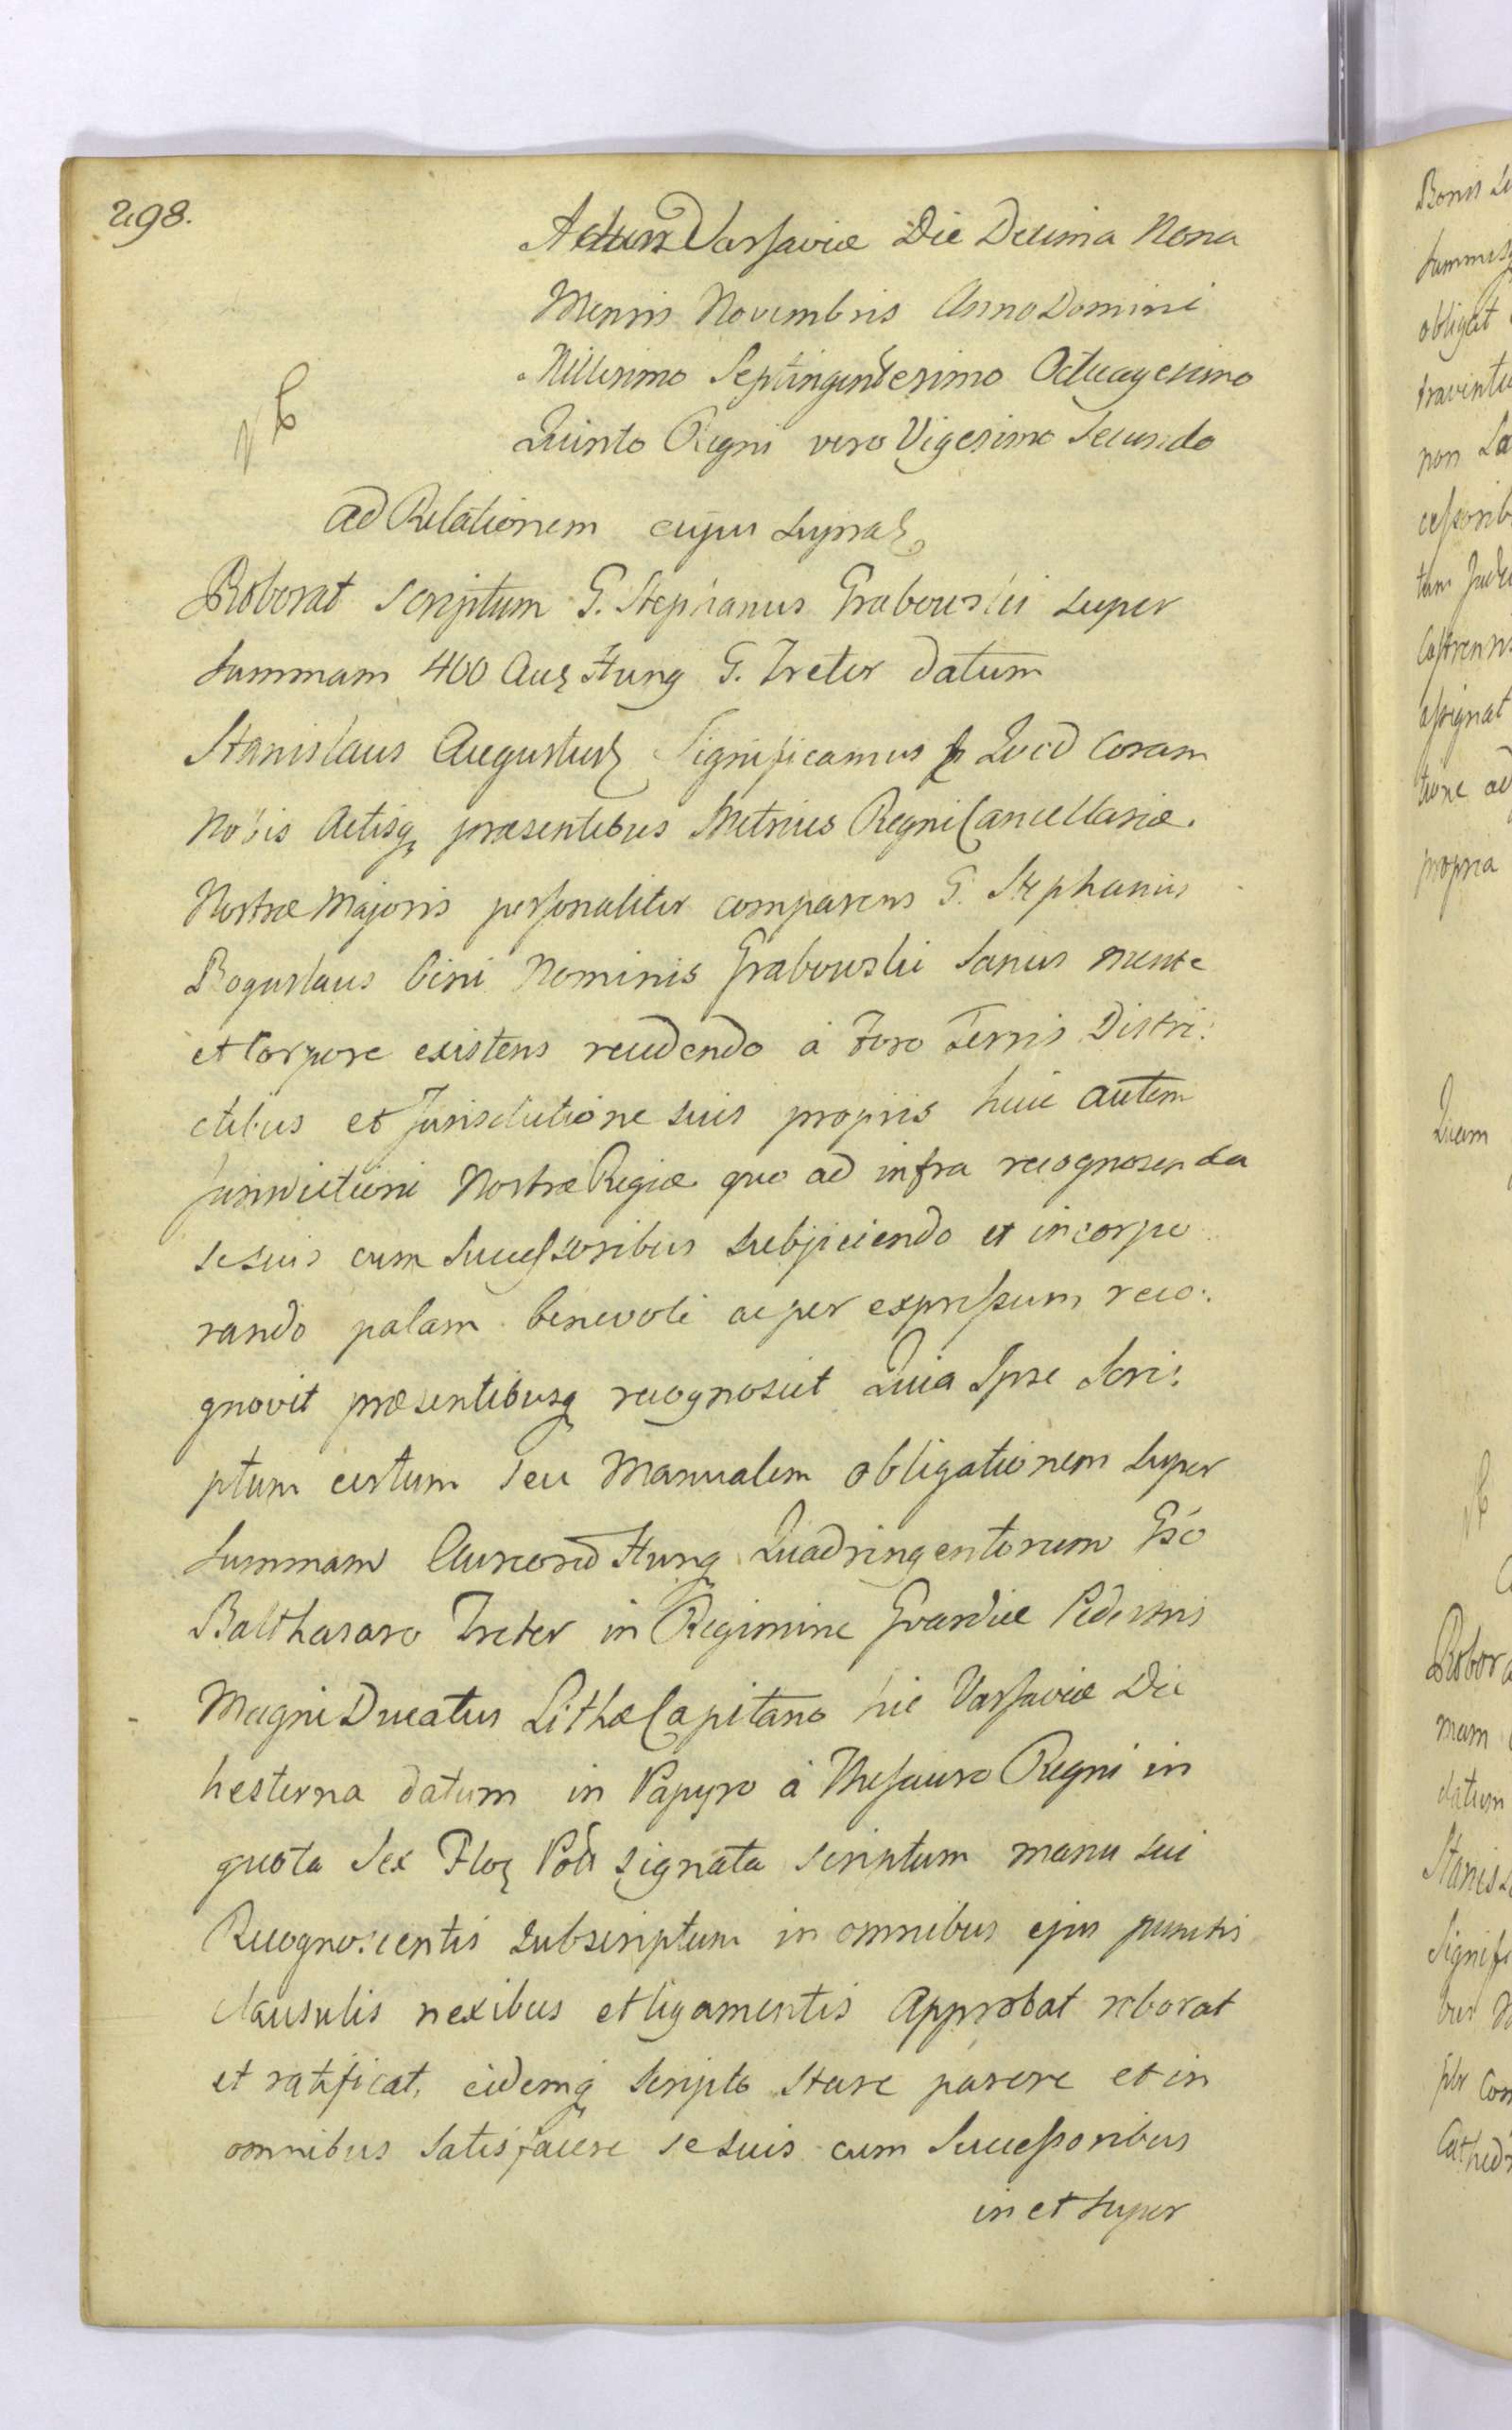 298.
Actum Varsaviæ Die Decima Nona
Mensis Novembris Anno Domini
Millesimo Septingentesimo Octuagesimo
Quinto Regni vero Vigesimo Secundo
ad Relationem cujus supra
Roborat Scriptum G. Stephanus Grabowski super
summam 400 Aur Hung G. Treter datum
Stanislaus Augustus Significamus Quod Coram
Nobis Actisq præsentibus Metrices Regni Cancellariæ
Nostræ Majoris personaliter comparens G. Stephanus
Boguslaus bini Nominis Grabowski Sanus mente
et Corpore existens recedendo à Foro Terris Distri:
ctibus et Jurisdictione suis propriis huic autem
Jurisdictioni Nostræ Regiæ quo ad infra recognoscenda
se suis cum Successoribus subjiciendo et incorpo
rando palam benevole ac per expressum reco:
gnovit præsentibusq recognoscit Quia Ipse Scri:
ptum certum seu Manualem obligationem super
Summam Aureorum Hung Quadringentorum Gso
Balthasaro Treter in Regimine Gvardiæ Pedestris
Magni Ducatus Lithæ Capitano hic Varsaviæ Die
hesterna datum in Papyro à Thesauro Regni in
quota Sex Flor Pol signata scriptum manu sui
Recognoscentis subscriptum in omnibus ejus punctis
clausulis nexibus et ligamentis Approbat roborat
et ratificat, eidemq Scripto stare parere et in
omnibus Satisfacere se suis cum Successoribus
in et super